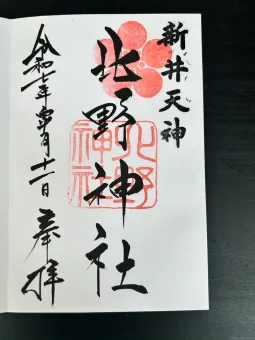 新井天神
北野神社
北野
神社
令和七年霜月十一日 奉拝